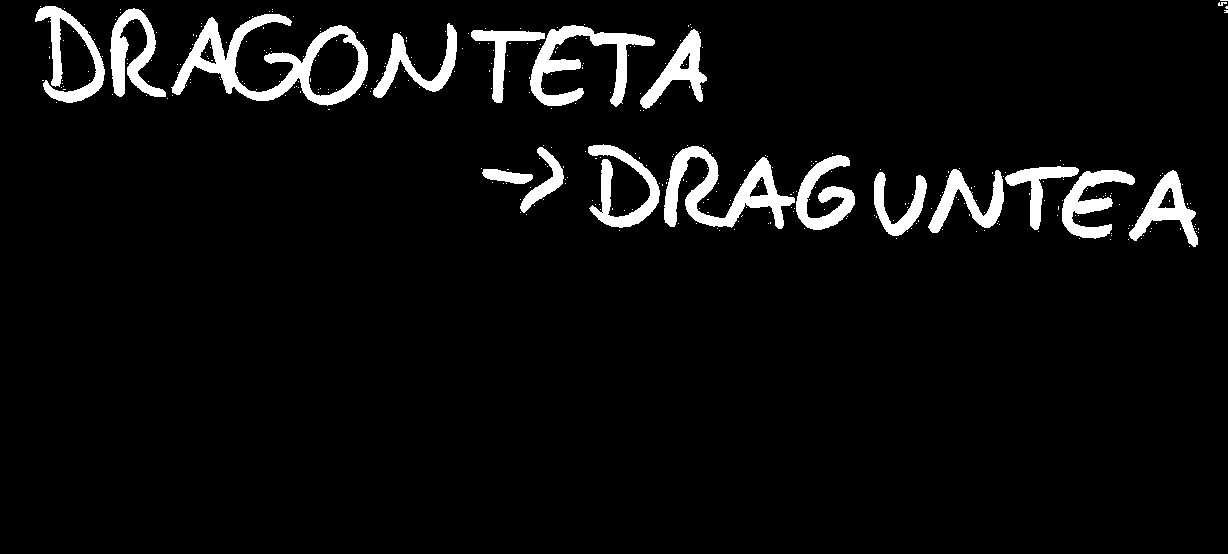 DRAGONTETA
-> DRAGUNTEA